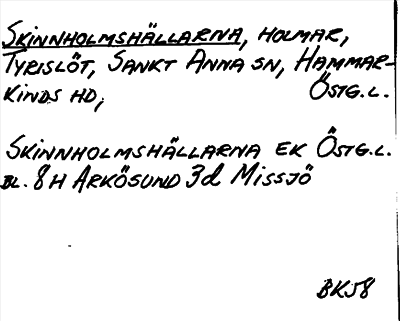 SKINNHOLMSHÄLLARNA, HOLMAR,
TYRISLÖT, SANKT ANNA SN, HAMMAR-
KINDS HD, ÖSTG.L.
SKINNHOLMSHÄLLARNA EK ÖSTG.L.
BL. 8H ARKÖSUND 3d MISSJÖ
BK58